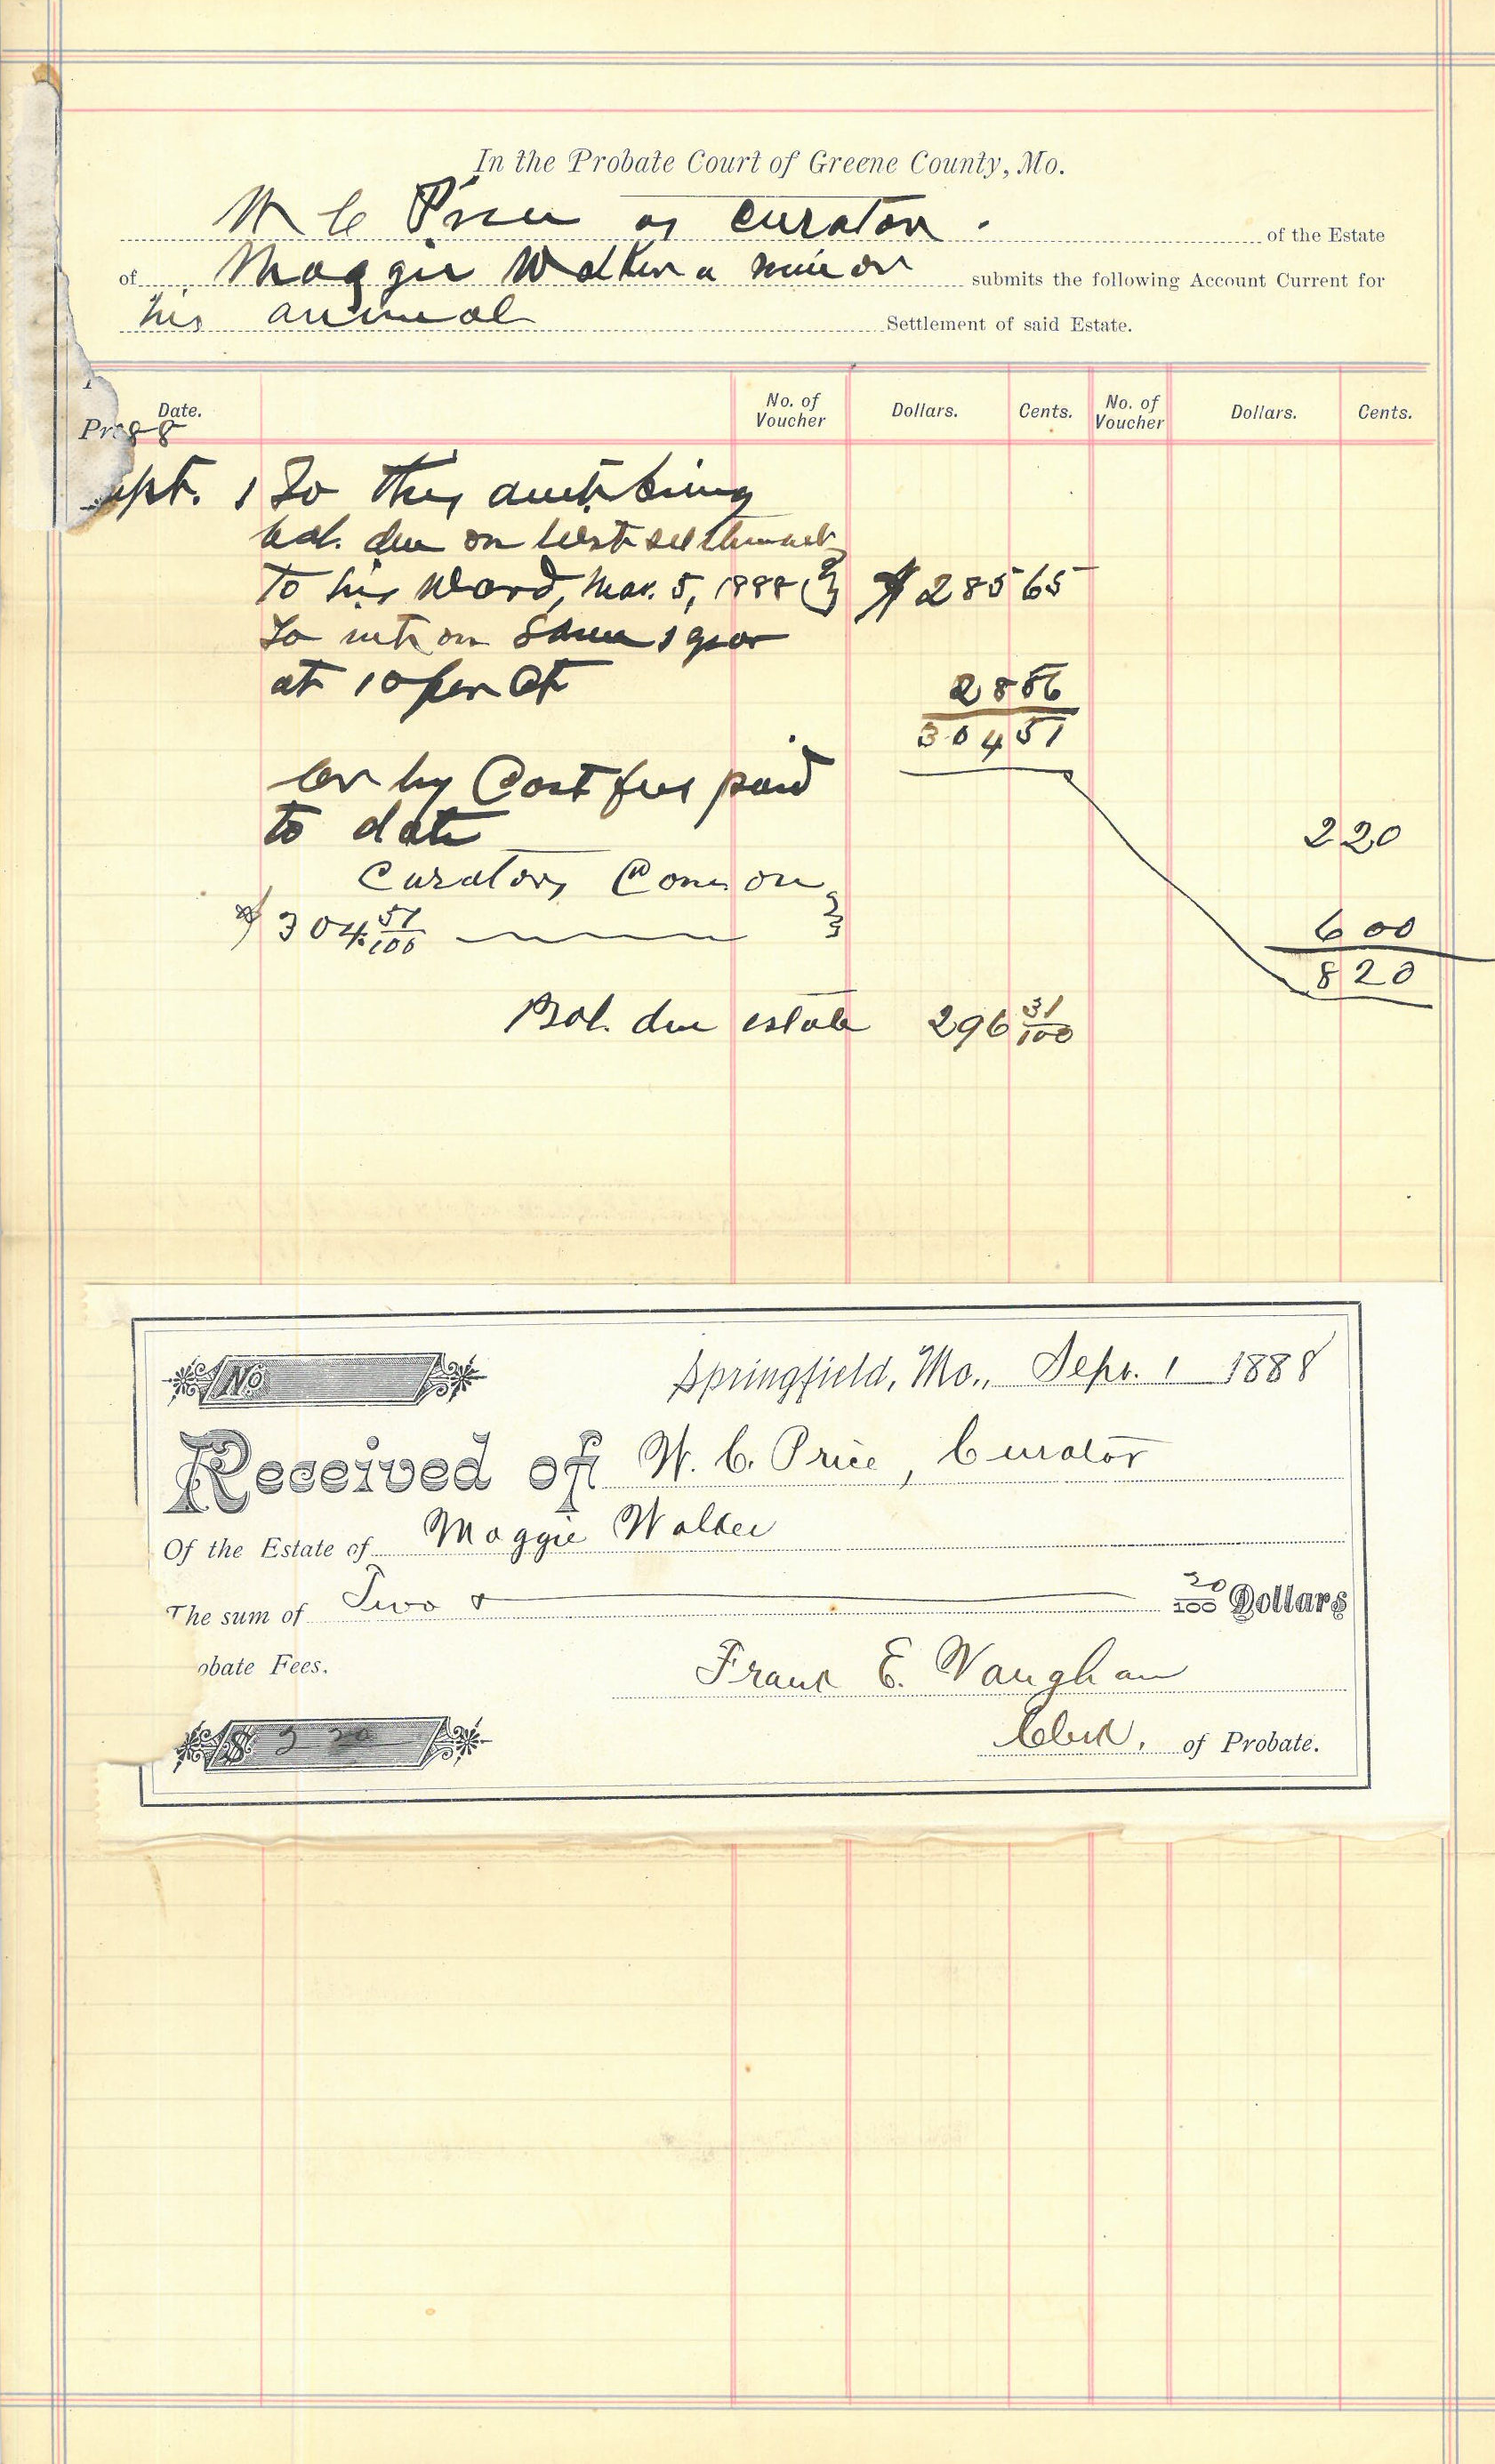 In the Probate Court of Greene County, Mo.
W C Price as curator. of the Estate
of Maggie Walker a minor submits the following Account Current for
his annual Settlement of said Estate.
Date. No. of Voucher Dollars. Cents. No. of Voucher Dollars. Cents.
88
Sept. 1 To this amt. being
bal. due on last settlement
to his Ward, Mar. 5, 1888 $285 65
To int on Same 1 year
at 10 per Ct 28 56
304 51
Cr by Cost fees paid
to date 2 20
Curators Com. on
$304.51/100 6 00
8 20
Bal. due estate 296 31/100
No. Springfield, Mo., Sept. 1 1888
Received of W. C. Price, Curator
Of the Estate of Maggie Walker
The sum of Two & 20/100 Dollars
obate Fees. Frank E. Vaughan
$ 2 20 Clerk, of Probate.